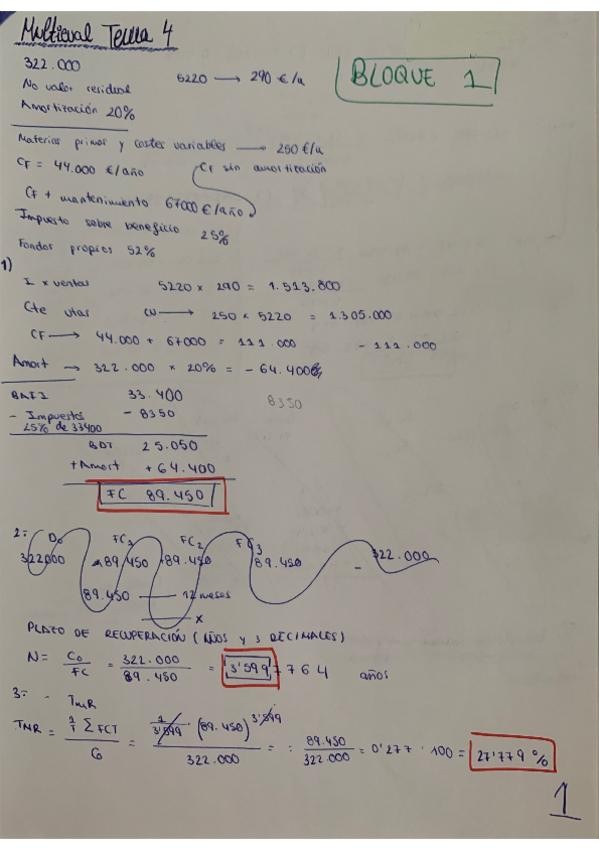 Multieval Tema 4
322.000
5220 → 290 €/u
BLOQUE 1
No valor residual
Amortización 20%
Materias primas y costes variables → 250 €/u
CF = 44.000 €/año
CF sin amortización
CF + mantenimiento 67000 €/año
Impuesto sobre beneficio 25%
Fondos propios 52%
1)
I x ventas 5220 x 290 = 1.513.800
Cte vtas CV → 250 x 5220 = 1.305.000
CF → 44.000 + 67000 = 111.000 - 111.000
Amort → 322.000 x 20% = - 64.400
BAII 33.400
8350
- Impuestos - 8350
25% de 33400
BDT 25.050
+ Amort + 64.400
FC 89.450
2=
D0 FC1 FC2 FC3
322000 89.450 89.450 89.450 - 322.000
89.450 — 12 meses
x
PLAZO DE RECUPERACIÓN (AÑOS Y 3 DECIMALES)
N = C0/FC = 322.000/89.450 = 3'5997764 años
3= - TMR
TMR = 1/T Σ FCT / C0 = 1/3'599 (89.450) 3'599 / 322.000 = : 89.450/322.000 = 0'277 · 100 = 27'779 %
1